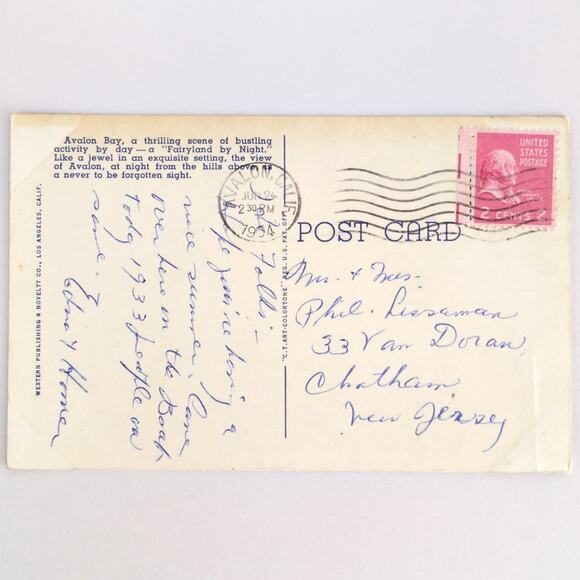 Avalon Bay, a thrilling scene of bustling
activity by day — a "Fairyland by Night."
Like a jewel in an exquisite setting, the view
of Avalon, at night from the hills above, is
a never to be forgotten sight.
WESTERN PUBLISHING & NOVELTY CO., LOS ANGELES, CALIF.
"C.T. ART-COLORTONE" REG. U.S. PAT. OFF.
AVALON, CALIF.
JUN 25
2 30 PM
1954
UNITED
STATES
POSTAGE
2 CENTS 2
POST CARD
Folks:-
Hope you're having a
nice summer. Came
over here on the Boat
today 1933 people on
same. Edna & Homer
Mr. & Mrs.
Phil. Lissaman
33 Van Doran
Chatham
New Jersey